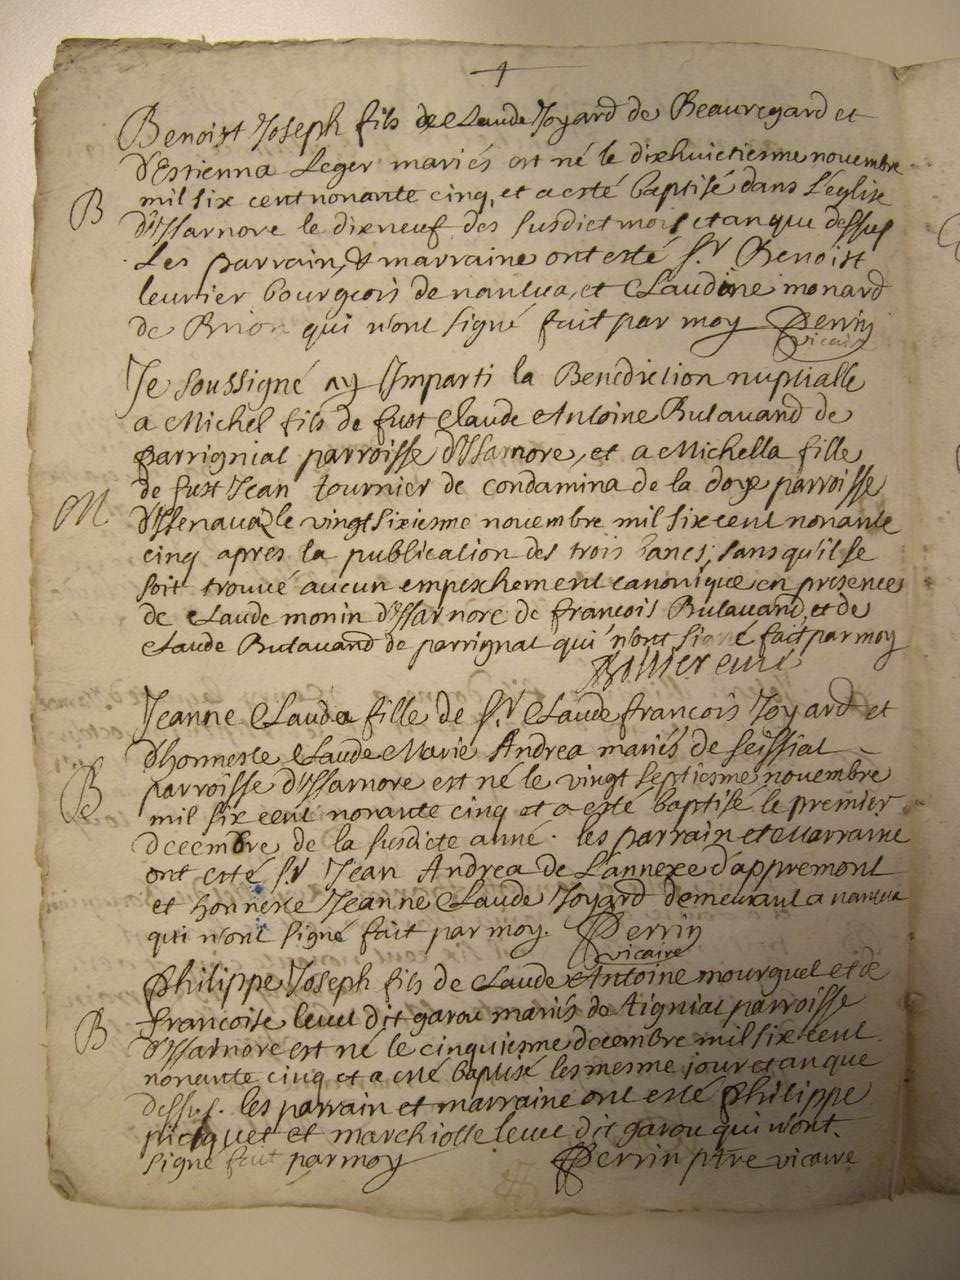 Benoist Joseph fils de Claude Joyard de Beauregard et
d'Estienna Leger mariés est né le dixhuictiesme novembre
B
mil six cent nonante cinq, et a esté baptisé dans l'église
d'Issarnore le dixneuf des susdict mois et an que dessus
Les parrain, & marraine ont esté Sr Benoist
leurier bourgeois de nantua, et Claudine monard
de Brion qui n'ont signé fait par moy Perrin
vicaire
Je soussigné ay Imparti la Benediction nuptialle
a Michel fils de fust Claude Antoine Butavand de
parrigniat parroisse d'Issarnore, et a Michella fille
de fust Jean tournier de condamina de la doye parroisse
M
le vingt sixiesme novembre mil six cent nonante
cinq apres la publication des trois bancs, sans qu'il se
soit trouvé aucun empeschement canonique en presences
de Claude monin d'Issarnore de francois Butavand, et de
Claude Butavand de perrignat qui n'ont signé fait par moy
curé
Jeanne Clauda fille de Sr Claude francois Joyard et
d'honneste Claude Marie Andrea mariés de seissiat
B
parroisse d'Issarnore est né le vingt septiesme novembre
mil six cent nonante cinq et a esté baptisé le premier
decembre de la susdicte anné. les parrain et Marraine
ont esté Sr Jean Andrea de Lannexe d'appremont
et honneste Jeanne Claude Joyard demeurant a nantua
qui n'ont signé fait par moy. Perrin
vicaire
Philippe Joseph fils de Claude Antoine mourguet et de
francoise leuul dit garou mariés de tigniat parroisse
B
d'Issarnore est né le cinquiesme decembre mil six cent
nonante cinq et a esté baptisé les mesme jour et an que
dessus. les parrain et marraine ont esté Philippe
picquet et marchiolle leuul dit garou qui n'ont
signé fait par moy Perrin ptre vicaire